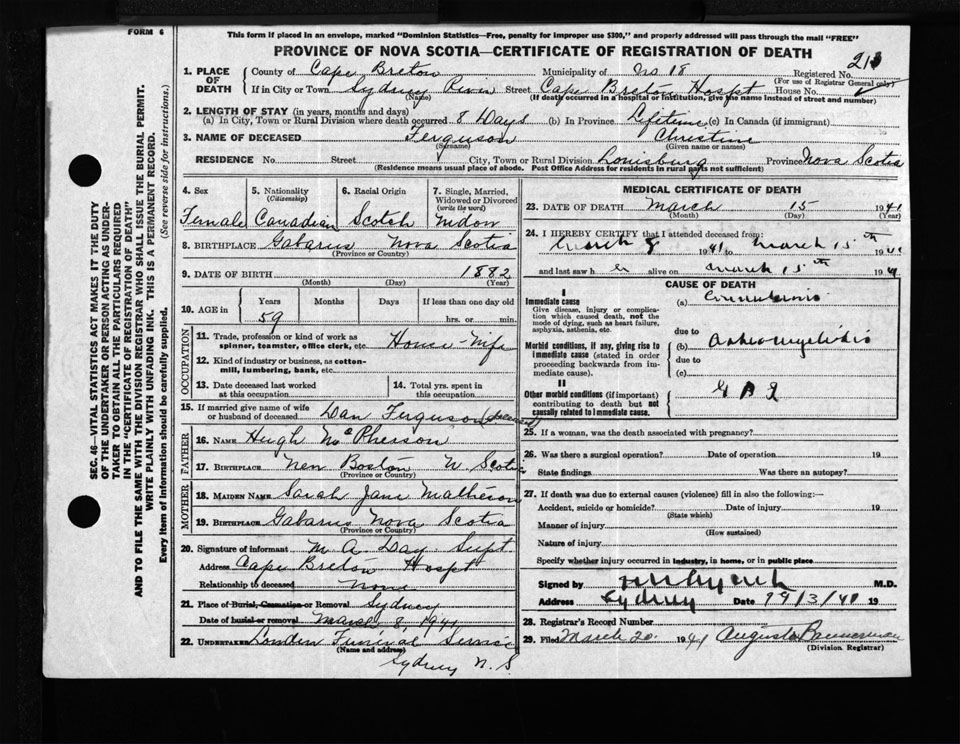 FORM 6
This form if placed in an envelope, marked "Dominion Statistics—Free, penalty for improper use $300," and properly addressed will pass through the mail "FREE"
PROVINCE OF NOVA SCOTIA—CERTIFICATE OF REGISTRATION OF DEATH
SEC. 46—VITAL STATISTICS ACT MAKES IT THE DUTY
OF THE UNDERTAKER OR PERSON ACTING AS UNDER-
TAKER TO OBTAIN ALL THE PARTICULARS REQUIRED
IN THE "CERTIFICATE OF REGISTRATION OF DEATH"
AND TO FILE THE SAME WITH THE DIVISION REGISTRAR WHO SHALL ISSUE THE BURIAL PERMIT.
WRITE PLAINLY WITH UNFADING INK. THIS IS A PERMANENT RECORD.
Every item of Information should be carefully supplied. (See reverse side for instructions.)
1. PLACE OF DEATH
County of Cape Breton Municipality of No 18 Registered No.
(For use of Registrar General only)
If in City or Town Sydney River Street Cape Breton Hospt House No.
(Name) (If death occurred in a hospital or institution, give the name instead of street and number)
2. LENGTH OF STAY (in years, months and days)
(a) In City, Town or Rural Division where death occurred 8 Days (b) In Province Lifetime (c) In Canada (if immigrant)
3. NAME OF DECEASED Ferguson Christine
(Surname) (Given name or names)
RESIDENCE No. Street City, Town or Rural Division Louisburg Province Nova Scotia
(Residence means usual place of abode. Post Office Address for residents in rural parts not sufficient)
4. Sex Female
5. Nationality (Citizenship) Canadian
6. Racial Origin Scotch
7. Single, Married, Widowed or Divorced (write the word) Widow
8. BIRTHPLACE Gabarus Nova Scotia
(Province or Country)
9. DATE OF BIRTH 1882
(Month) (Day) (Year)
10. AGE in Years Months Days If less than one day old
59 hrs. or min.
OCCUPATION
11. Trade, profession or kind of work as spinner, teamster, office clerk, etc. House-Wife
12. Kind of industry or business, as cotton-mill, lumbering, bank, etc.
13. Date deceased last worked at this occupation
14. Total yrs. spent in this occupation
15. If married give name of wife or husband of deceased Dan Ferguson (deceased)
FATHER
16. NAME Hugh McPherson
17. BIRTHPLACE New Boston N Scotia
(Province or Country)
MOTHER
18. MAIDEN NAME Sarah Jane Matheson
19. BIRTHPLACE Gabarus Nova Scotia
(Province or Country)
20. Signature of informant M A Day Supt
Address Cape Breton Hospt
Relationship to deceased None
21. Place of Burial, Cremation or Removal Sydney
Date of burial or removal March 8, 1941
22. UNDERTAKER London Funeral Service
(Name and address)
Sydney N. S
MEDICAL CERTIFICATE OF DEATH
23. DATE OF DEATH March 15 1941
(Month) (Day) (Year)
24. I HEREBY CERTIFY that I attended deceased from:
March 8 1941 March 15th 1941
and last saw h er alive on March 15th 1941
CAUSE OF DEATH
I
Immediate cause (a)
Give disease, injury or complication which caused death, not the mode of dying, such as heart failure, asphyxia, asthenia, etc.
due to
Morbid conditions, if any, giving rise to immediate cause (stated in order proceeding backwards from immediate cause).
(b)
due to
(c)
II
Other morbid conditions (if important) contributing to death but not causally related to Immediate cause.
25. If a woman, was the death associated with pregnancy?
26. Was there a surgical operation? Date of operation 19
State findings Was there an autopsy?
27. If death was due to external causes (violence) fill in also the following:—
Accident, suicide or homicide? Date of injury 19
(State which)
Manner of injury
(How sustained)
Nature of injury
Specify whether injury occurred in industry, in home, or in public place
Signed by M.D.
Address Sydney Date 19/3/41 19
28. Registrar's Record Number
29. Filed March 20 1941 Augusta Bannerman
(Division Registrar)